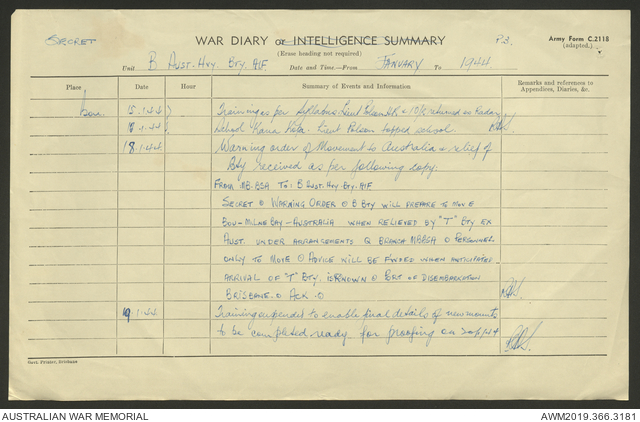 SECRET
WAR DIARY or INTELLIGENCE SUMMARY
P.3.
Army Form C.2118
(adapted.)
(Erase heading not required)
Unit B AUST. HVY. BTY. AIF. Date and Time—From JANUARY To 1944
Place Date Hour Summary of Events and Information Remarks and references to Appendices, Diaries, &c.
15.1.44) Training as per Syllabus. Lieut Polson + 10/R returned as Radar
18.1.44) School Lieut Polson topped school.
18.1.44 Warning order of Movement to Australia & relief of
Bty received as per following copy:
FROM MB.BSA TO: B AUST. HVY. BTY. AIF
SECRET ⊙ WARNING ORDER ⊙ B BTY WILL PREPARE TO MOVE
BOU-MILNE BAY-AUSTRALIA WHEN RELIEVED BY "T" BTY EX
AUST. UNDER ARRANGEMENTS Q BRANCH MBBSA ⊙ PERSONNEL
ONLY TO MOVE ⊙ ADVICE WILL BE FWDED WHEN ANTICIPATED
ARRIVAL OF "T" BTY. IS KNOWN ⊙ PORT OF DISEMBARKATION
BRISBANE ⊙ ACK ⊙
19.1.44 Training suspended to enable final details of new mounts
to be completed ready for proofing on 20/1/44
Govt. Printer, Brisbane
AUSTRALIAN WAR MEMORIAL
AWM2019.366.3181